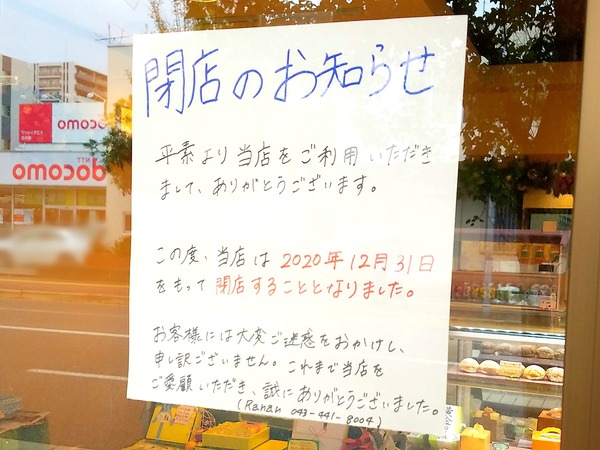 閉店のお知らせ
平素より当店をご利用いただき
まして、ありがとうございます。
この度、当店は2020年12月31日
をもって閉店することとなりました。
お客様には大変ご迷惑をおかけし、
申し訳ございません。これまで当店を
ご愛顧いただき、誠にありがとうございました。
(Ranau 043-441-8004)
docomo
NTT
docomo